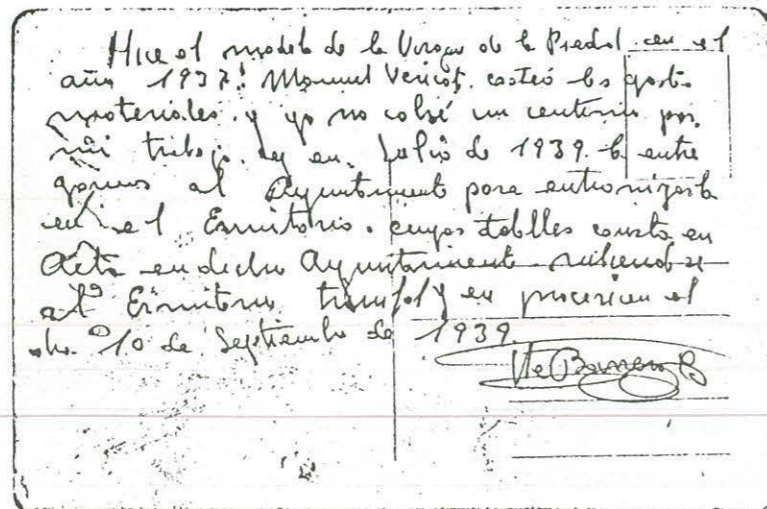 Hice el modelo de la Virgen de la Piedad en el
año 1937. Manuel costeó los gastos
materiales. y yo no cobré un centimo por
mi trabajo. y en Julio de 1939. la entre
gamos al Ayuntamiento para entronizarla
en el Ermitorio. cuyos detalles consta en
Acta en dicho Ayuntamiento subiendose
al Ermitorio triunfal y en procesion el
10 de Septiembre de 1939